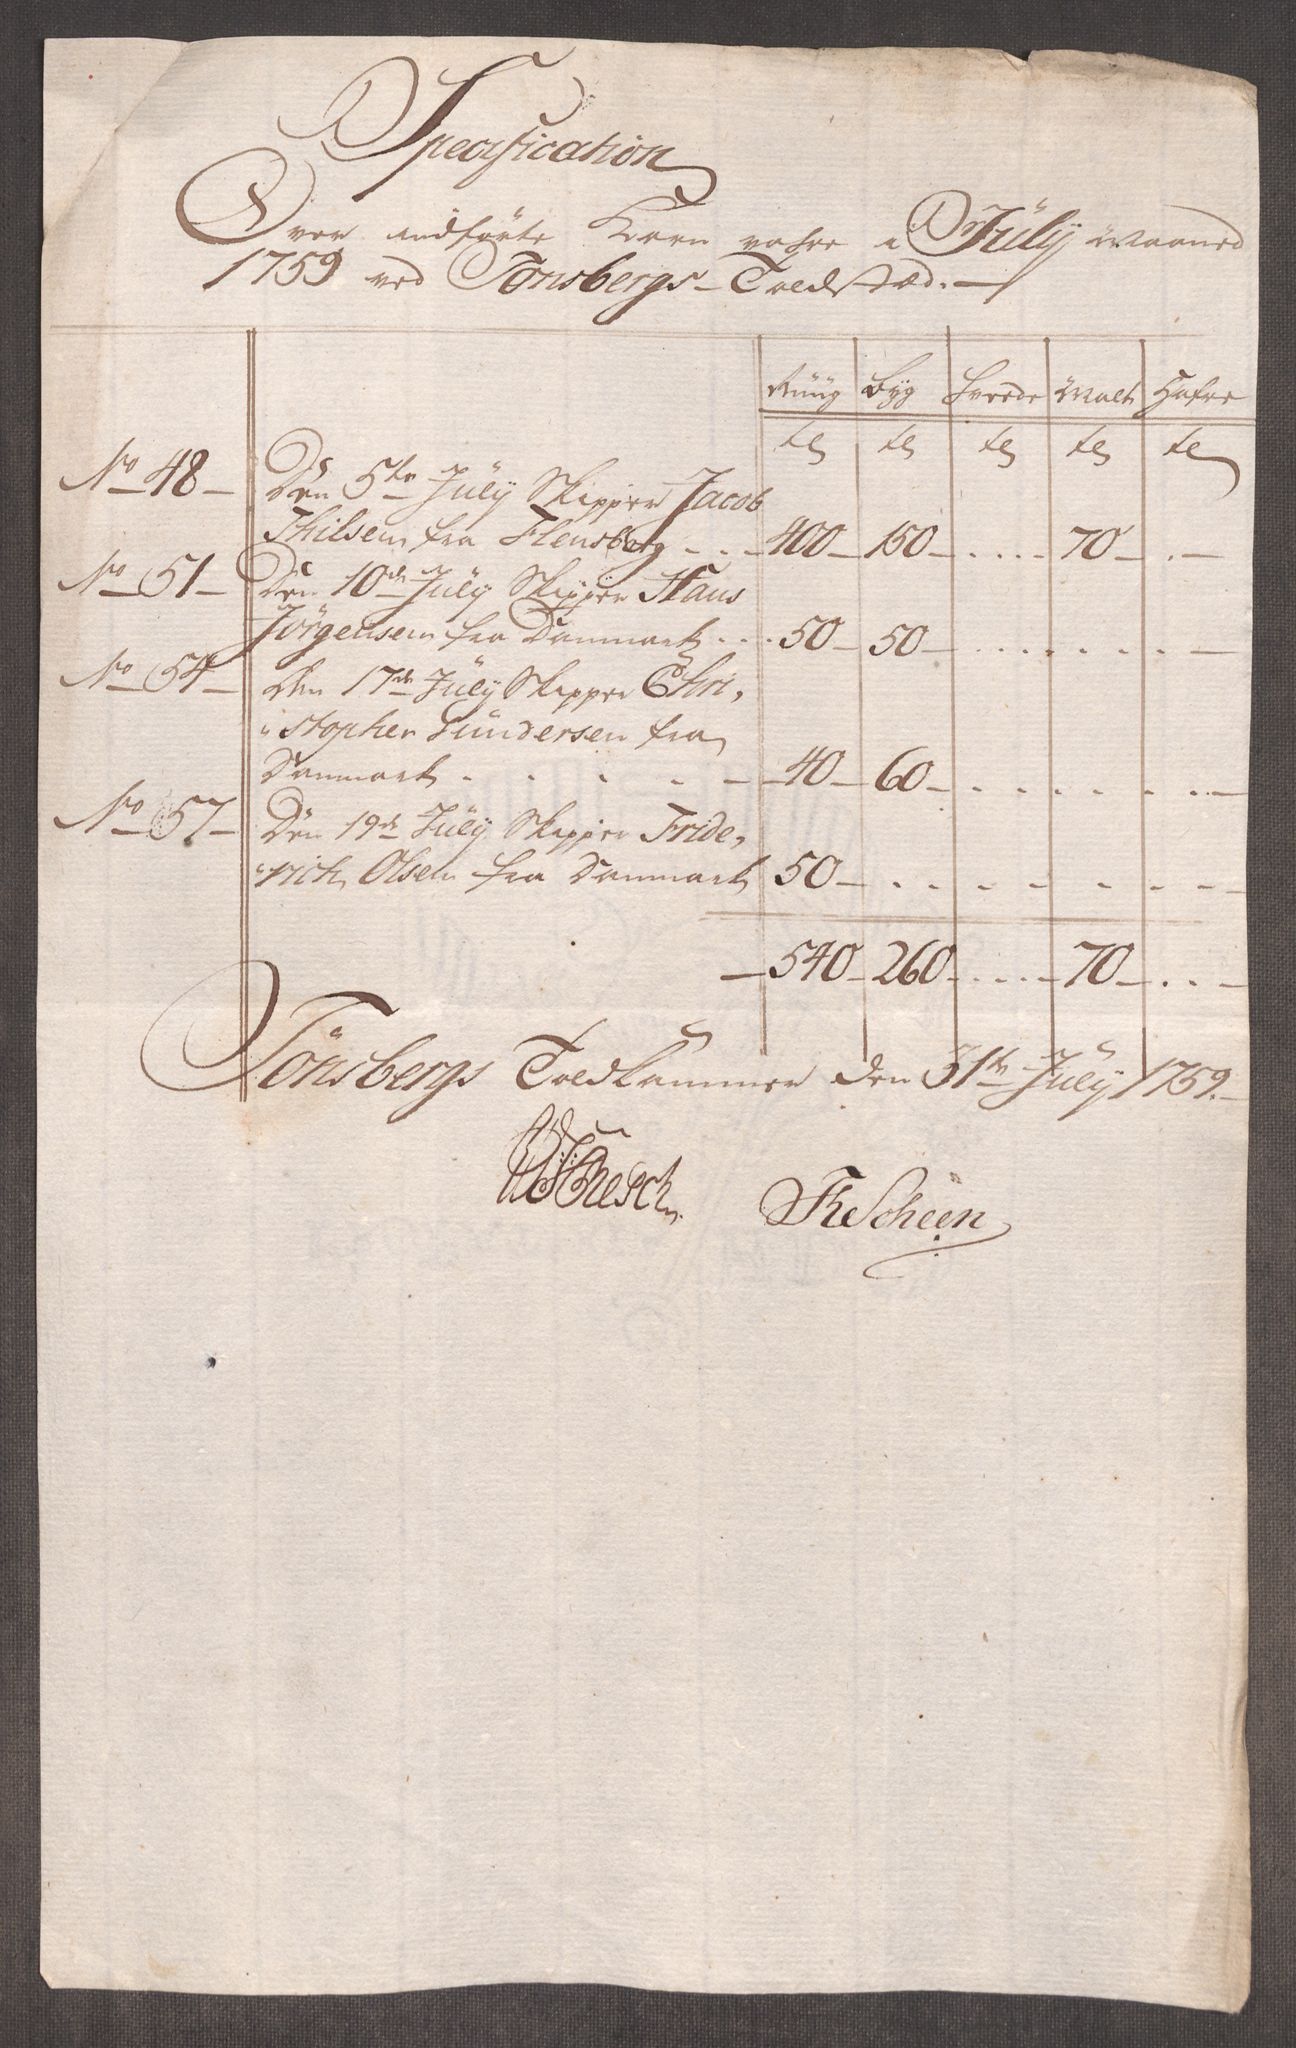 Specification
Over indförte Korn vahre i Jüly Maaned
1759 ved Tönsbergs Toldstæd.
Rüüg Byg Hvede Malt Hafre
tr tr tr tr tr
No 48 Den 5te Jüly Skipper Jacob
Thilsen fra Flensborg - - - 400 - 150 - . . . . 70 - . -
No 51 Den 10de Jüly Skipper Hans
Jörgensen fra Danmark . . . 50 - 50 - . . . . . . . -
No 54 Den 17de Jüly Skipper Chri,
stopher Gundersen fra
Danmark . . . . . - 40 - 60 - . . . . . . . -
No 57 Den 19de Jüly Skipper Fride,
rich Olsen fra Danmark 50 - . . . . . . . . -
- 540 - 260 - . . . - 70 - . . -
Tönsbergs Toldkammer den 31te Jüly 1759.
Scheen